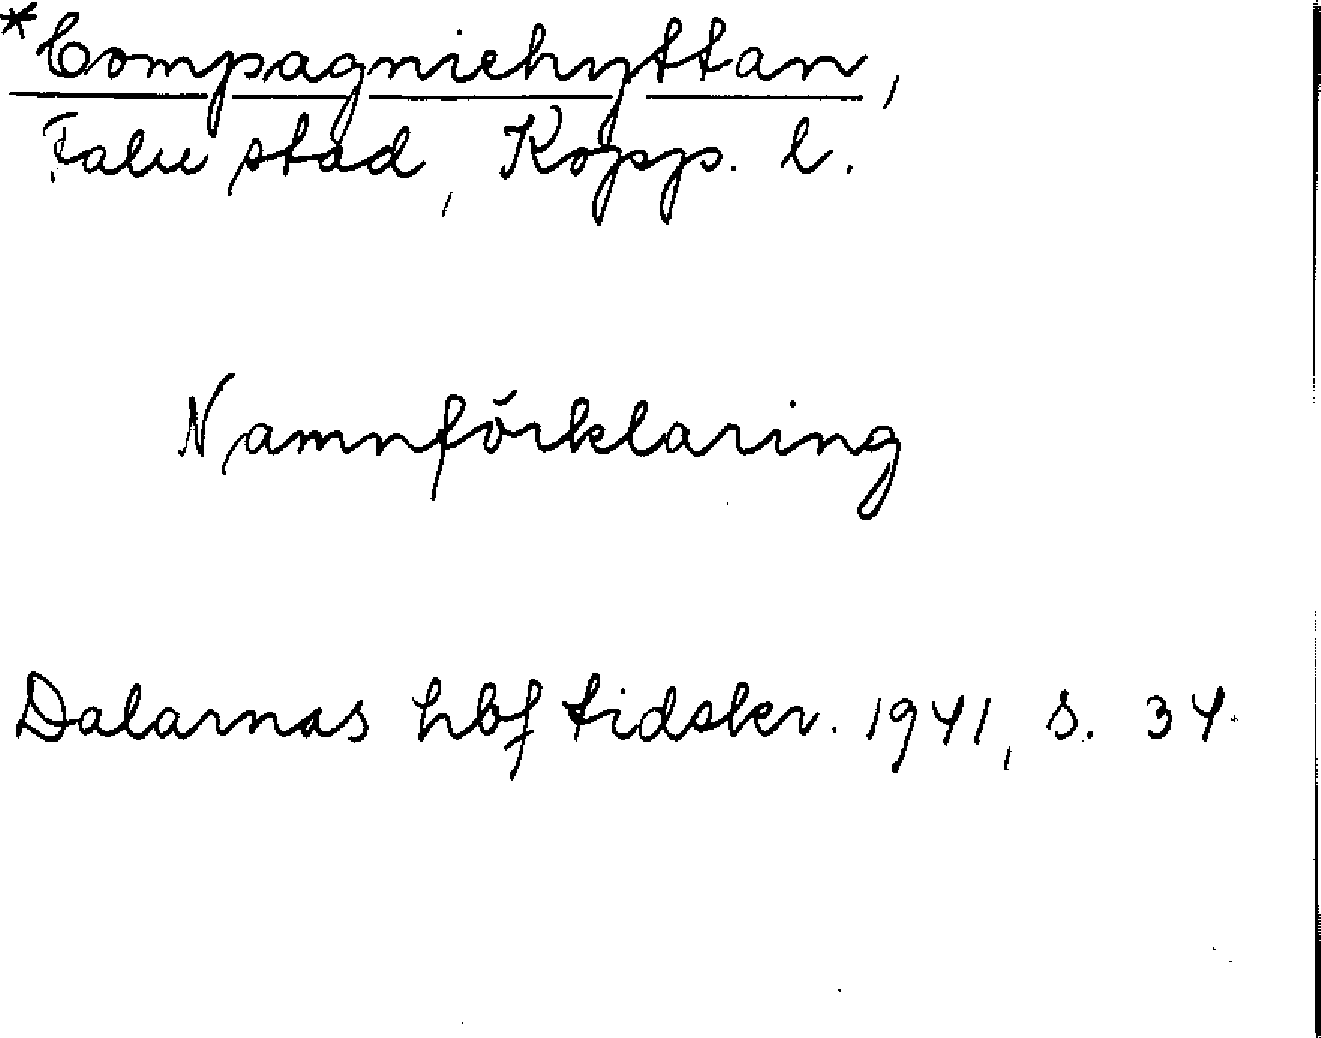 *Compagniehyttan,
Falu stad, Kopp. l.
Namnförklaring
Dalarnas hbf tidskr. 1941, s. 34.